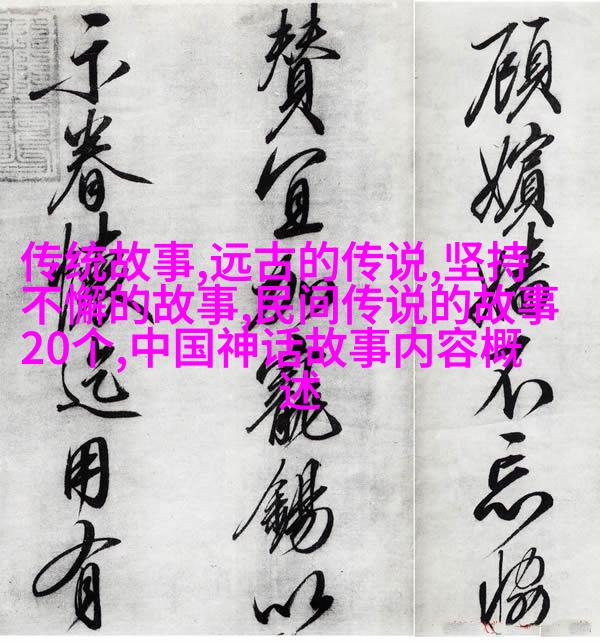 传统故事,远古的传说,坚持
不懈的故事,民间传说的故事
20个,中国神话故事内容概
述
顾嫔不忘
赞宜寵錫以
示眷用有